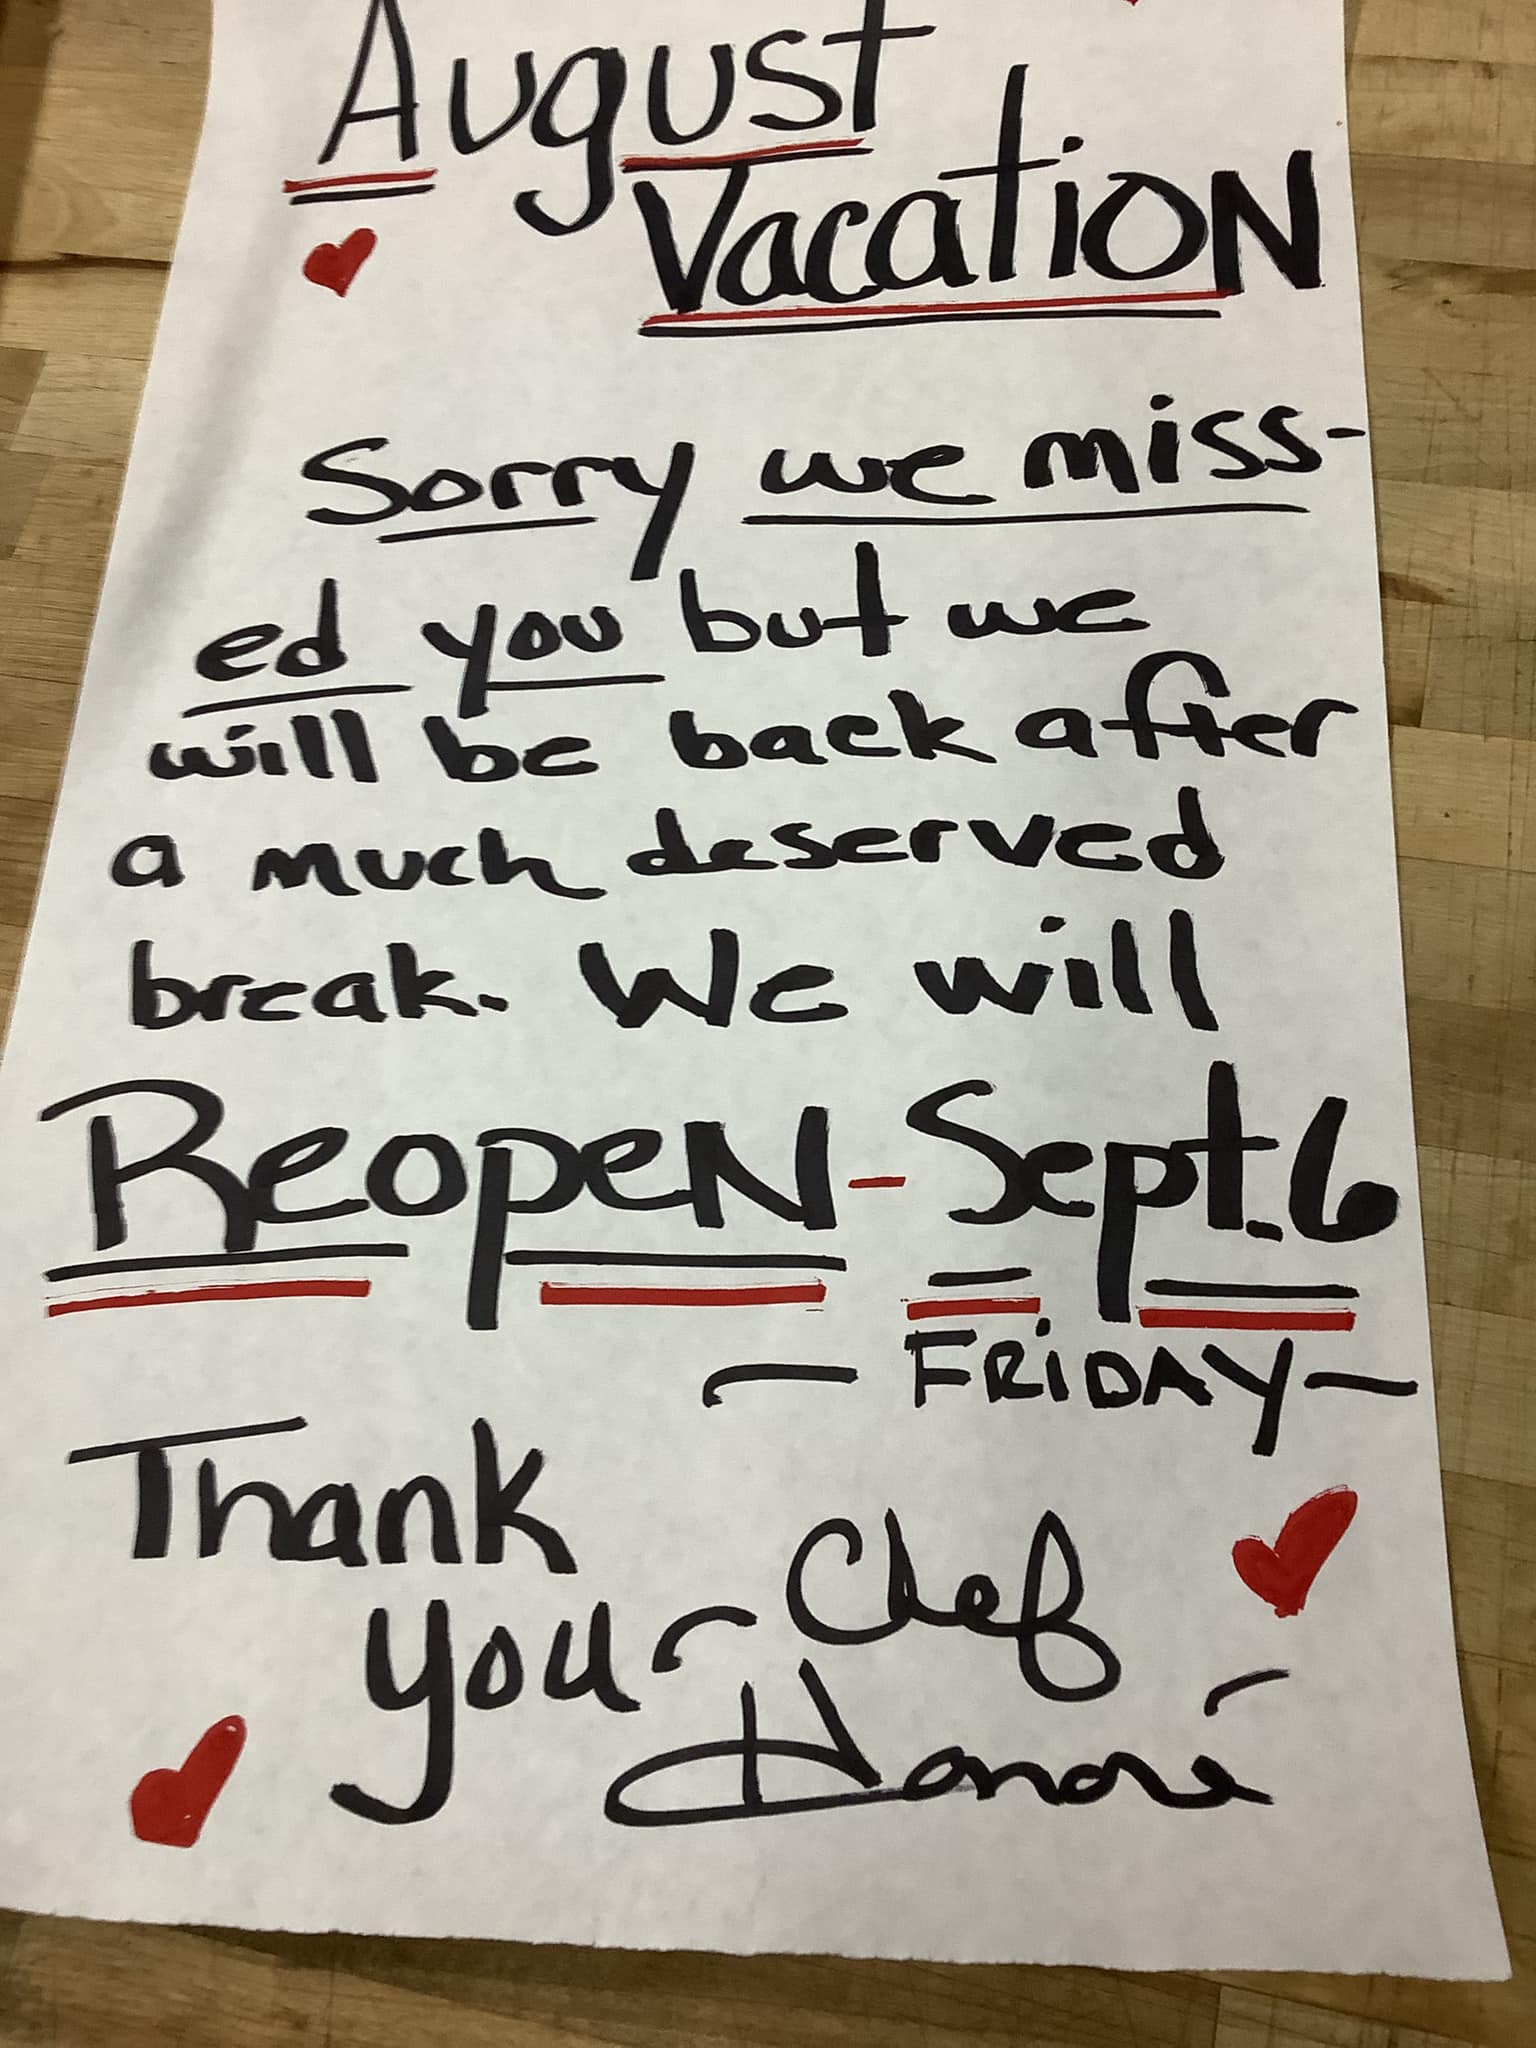 August
Vacation
Sorry we miss-
ed you but we
will be back after
a much deserved
break. We will
Reopen - Sept. 6
— FRIDAY —
Thank
you - Chef
Honoré